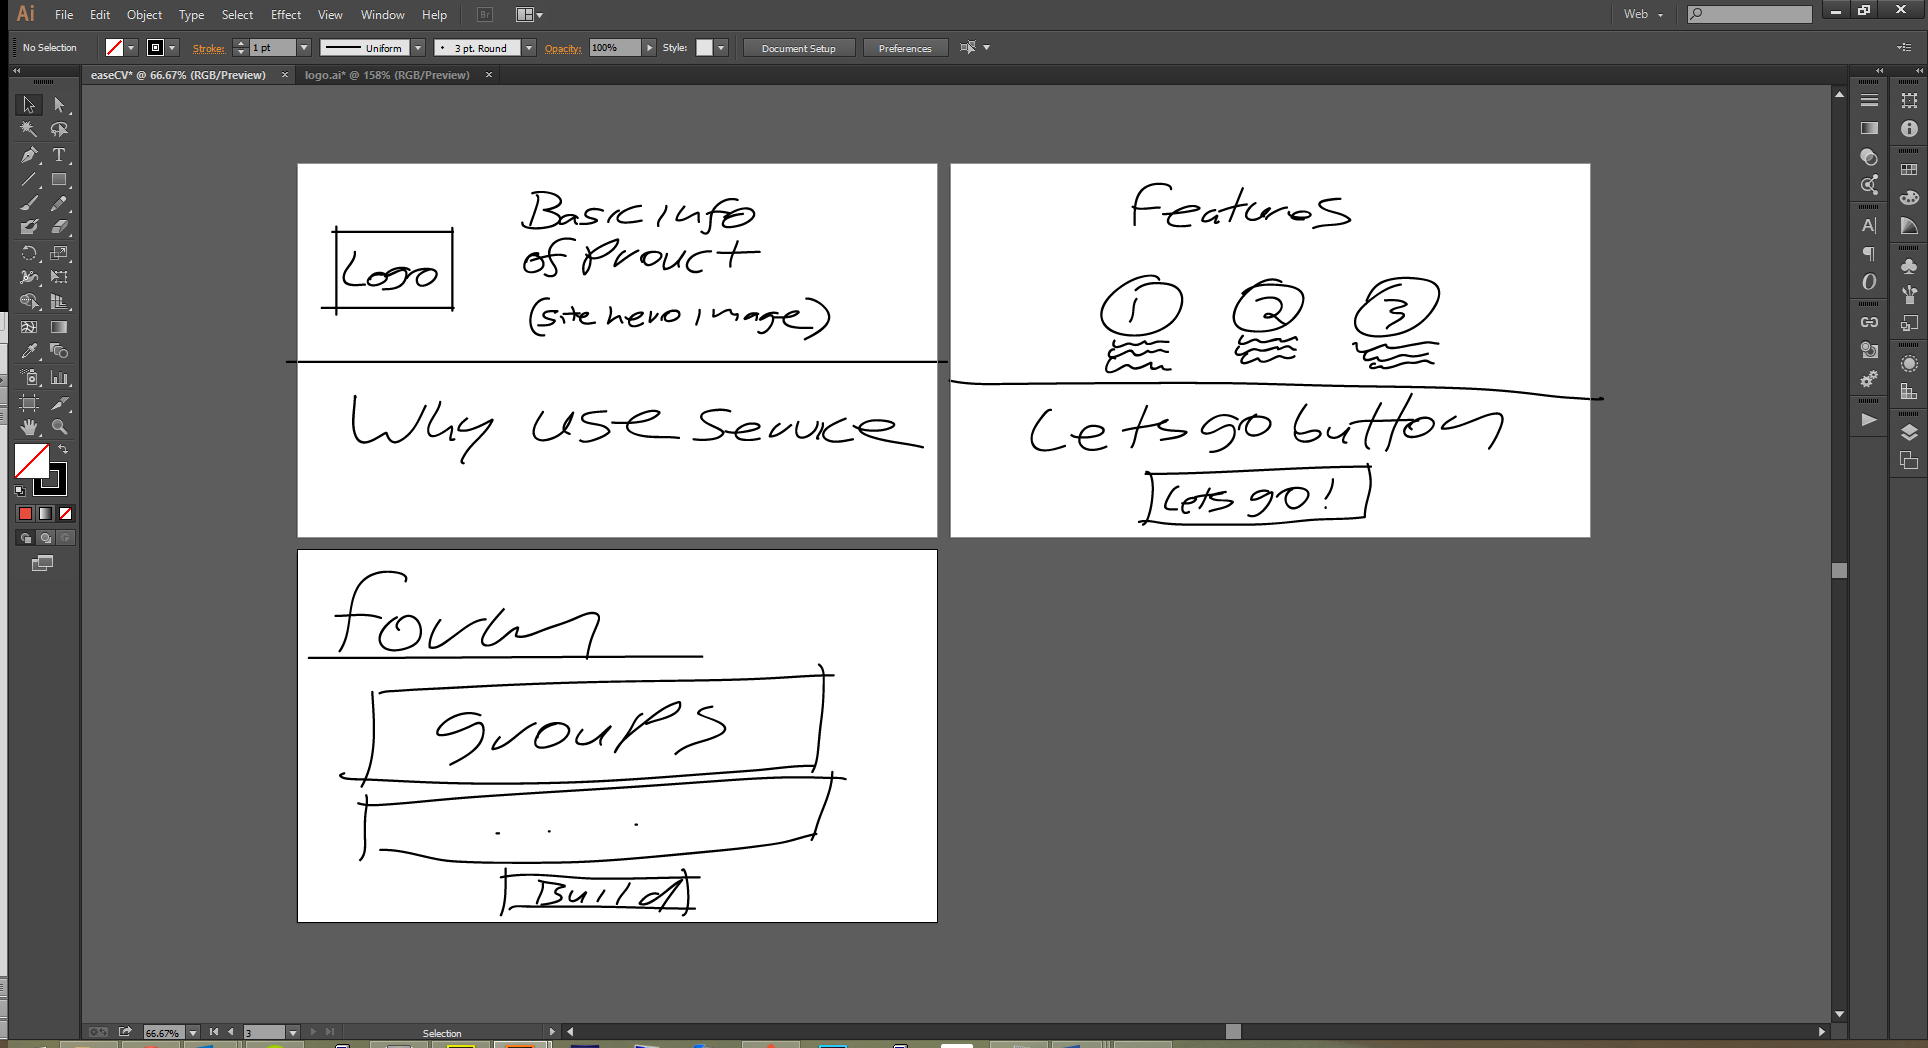 Ai File Edit Object Type Select Effect View Window Help Br Web
No Selection Stroke: 1 pt Uniform 3 pt. Round Opacity: 100% Style: Document Setup Preferences
easeCV* @ 66.67% (RGB/Preview) × logo.ai* @ 158% (RGB/Preview) ×
Logo
Basic info
of Prouct
(site hero image)
Why use service
Features
1 2 3
Lets go button
Lets go!
form
groups
. . .
Build
66.67% 3 Selection